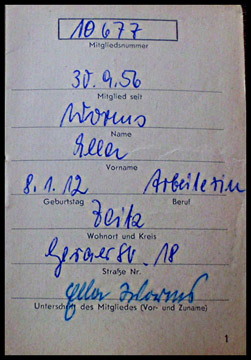 10677
Mitgliedsnummer
30.9.56
Mitglied seit
Worms
Name
Ella
Vorname
8.1.12 Arbeiterin
Geburtstag Beruf
Zeitz
Wohnort und Kreis
Geraer Str. 18
Straße Nr.
Ella Worms
Unterschrift des Mitgliedes (Vor- und Zuname)
1